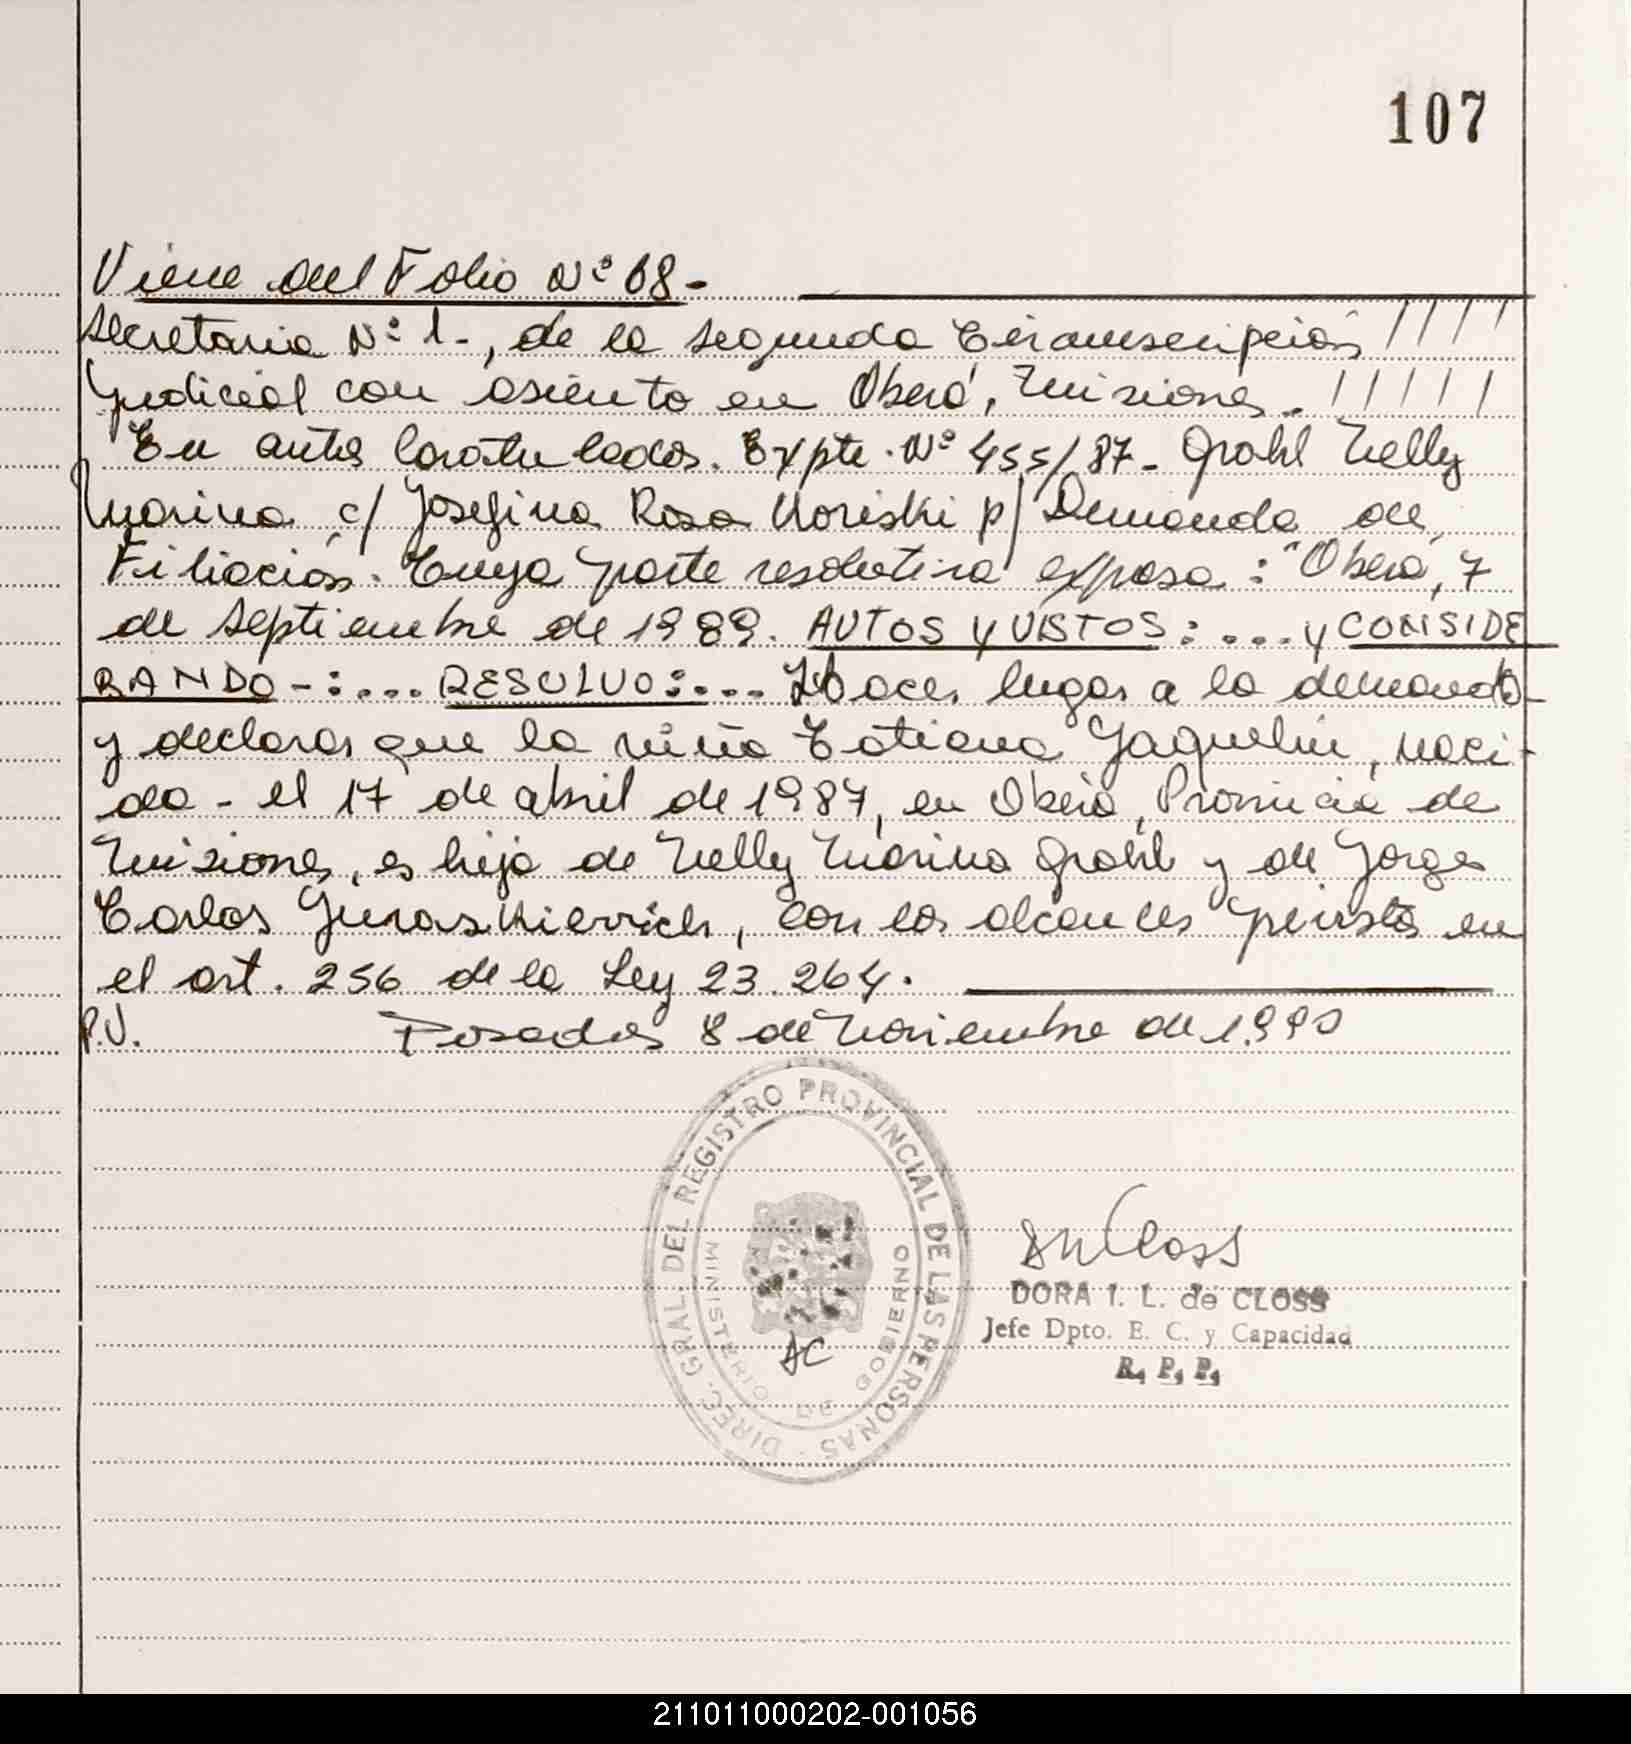 107
Viene del Folio Nº 68.-
Secretaria Nº 1-, de la segunda Circunscripción ////
Judicial con asiento en Oberá, Misiones. /////
En autos Caratulados. Expte. Nº 455/87- Grahl Nelly
Marina c/ Josefina Rosa Koriski p/ Demanda de
Filiación. Cuya parte resolutiva expresa: "Oberá, 7
de septiembre de 1989. AUTOS Y VISTOS:... y CONSIDE
RANDO-:... RESULVO:... Hacer lugar a la demanda
y declarar que la niña Tatiana Jaquelin, naci-
da- el 17 de abril de 1987, en Oberá, Provincia de
Misiones, es hija de Nelly Marina Grahl y de Jorge
Carlos, con los alcances en
el art. 256 de la Ley 23.264.
P.V. Posadas 8 de Noviembre de 1.990
DIREC. GRAL. DEL REGISTRO PROVINCIAL DE LAS PERSONAS
MINISTERIO DE GOBIERNO
DORA I. L. de CLOSS
Jefe Dpto. E. C. y Capacidad
R. P. P.
211011000202-001056